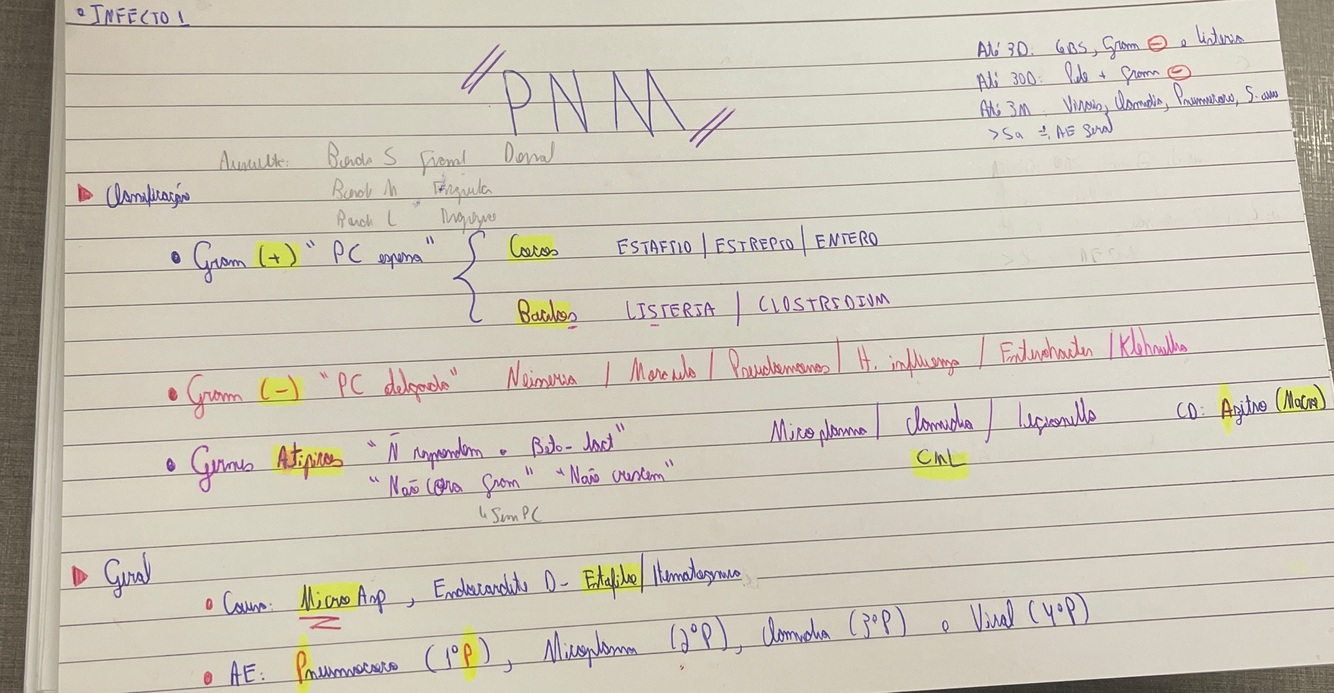 INFECTO 1
PNM
Até 3D: GBS, Gram ⊖ e listeria
Até 30D: Pele + Gram ⊖
Até 3M Virais, Clamidia, Pneumococo, S. aureus
>5a AE Geral
Ausculta: Borda S Frontal Dorsal
Borda M Língula
Borda L
▶ Classificação
• Gram (+) "PC espessa" { Cocos ESTAFILO | ESTREPTO | ENTERO
Bacilos LISTERIA | CLOSTRIDIUM
• Gram (-) "PC delgada" Neisseria / Moraxela / Pseudomonas / H. influenza / Enterobacter / Klebsiella
• Germes Atípicos "Ñ respondem a Beta-lact" Micoplasma / Clamidia / Legionella CD: Azitro (Macro)
"Não cora gram" "Não crescem" CML
↳ Sem PC
▶ Geral
• Causa: Micro Asp, Endocardite D - Estafilo / Hematogenica
• AE: Pneumococo (1ºP), Micoplasma (2ºP), Clamidia (3ºP) e Viral (4ºP)